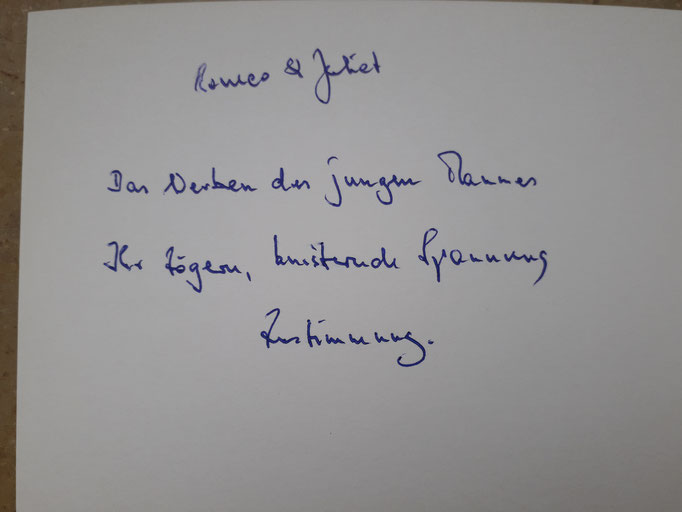 Romeo & Juliet
Das Werben des jungen Mannes
Ihr Zögern, knisternde Spannung
Zustimmung.